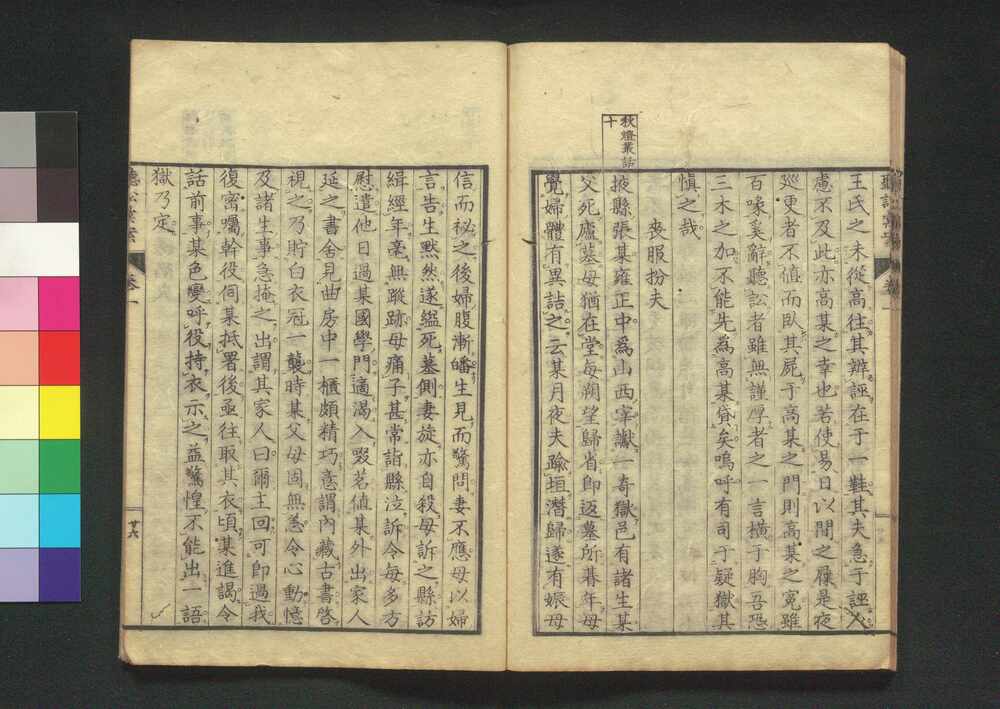 王氏之未從高往其辨誣在于一鞋其夫急于誣入
慮不及此亦高某之幸也若使易日以間之屨是夜
廵更者不値而臥其屍于高某之門則高某之冤雖
百喙奚辭聽訟者雖無謹厚者之一言橫于胸吾恐
三木之加不能先為高某貸矣嗚呼有司于疑獄其
愼之哉
喪服扮夫
秋燈叢話
十
掖縣張某雍正中為山西宰讞一奇獄邑有諸生某
父死廬墓母猶在堂每朔望歸省卽返墓所朞年母
覺婦體有異詰之云某月夜夫踰垣潛歸遂有娠母
信而祕之後婦腹漸皤生見而驚問妻不應母以婦
言告生默然遂縊死墓側妻旋亦自殺母訴之縣訪
緝經年毫無蹤跡母痛子甚常詣縣泣訴令每多方
慰遣他日過某國學門適渴入啜茗值某外出家人
延之書舍見曲房中一櫃頗精巧意謂內藏古書啓
視之乃貯白衣冠一襲時某父母固無恙令心動憶
及諸生事急掩之出謂其家人曰爾主回可卽過我
復密囑幹役伺某抵署後亟往取其衣頃某進謁令
話前事某色變呼役持衣示之益驚惶不能出一語
獄乃定
卷一
廿六